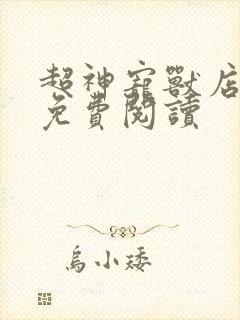 超神寵獸店
免費閱讀
烏小矮